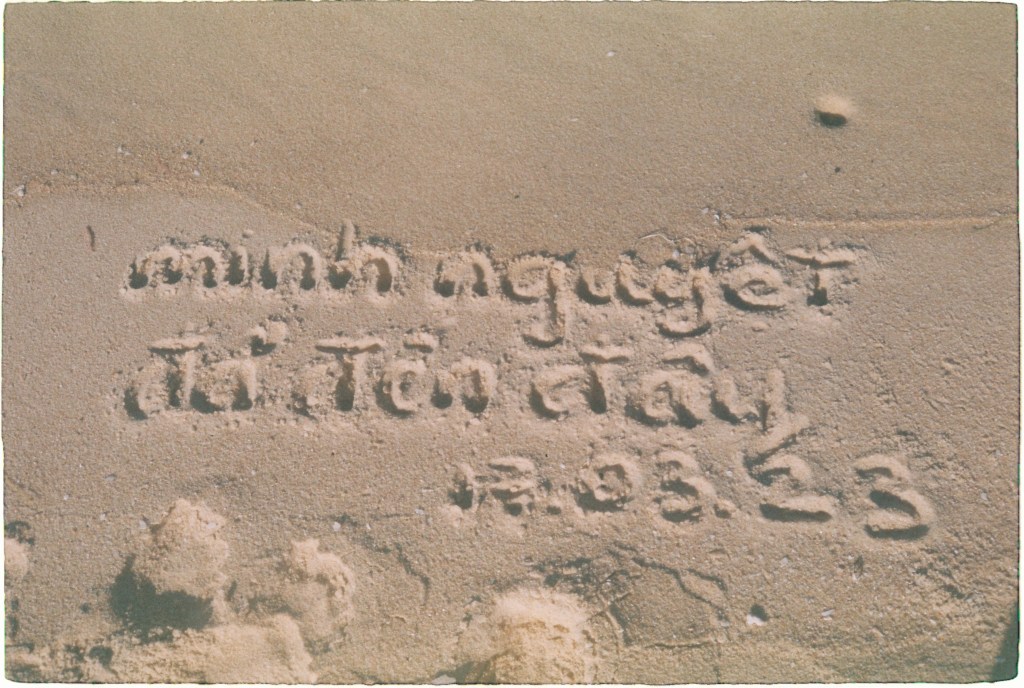 minh nguyệt
đã đến đây
12.03.23